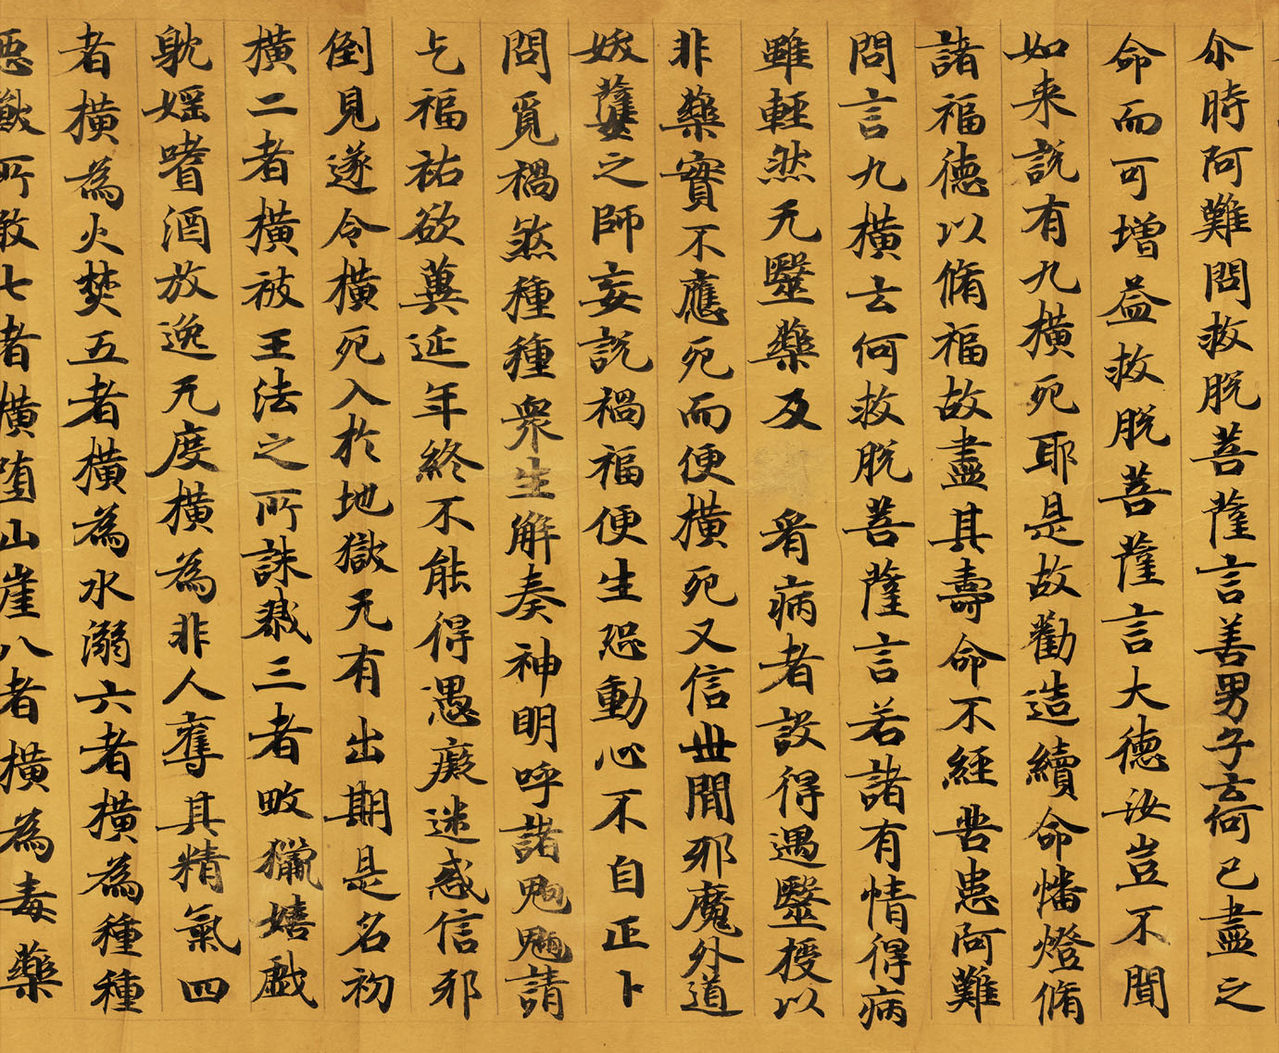 尒時阿難問救脱菩薩言善男子云何已盡之
命而可増益救脱菩薩言大德汝豈不聞
如来説有九橫死耶是故勸造續命幡燈脩
諸福德以脩福故盡其壽命不經苦患阿難
問言九橫云何救脱菩薩言若諸有情得病
雖輕然无毉藥及看病者設得遇毉授以
非藥實不應死而便橫死又信世間邪魔外道
妖孽之師妄説禍福便生恐動心不自正卜
問覓禍煞種種衆生解奏神明呼諸魍魎請
乞福祐欲冀延年終不能得愚癡迷惑信邪
倒見遂令橫死入於地獄无有出期是名初
橫二者橫被王法之所誅戮三者畋獵嬉戲
躭婬嗜酒放逸无度橫為非人奪其精氣四
者橫為火焚五者橫為水溺六者橫為種種
惡獸所敢七者橫堕山崖八者橫為毒藥